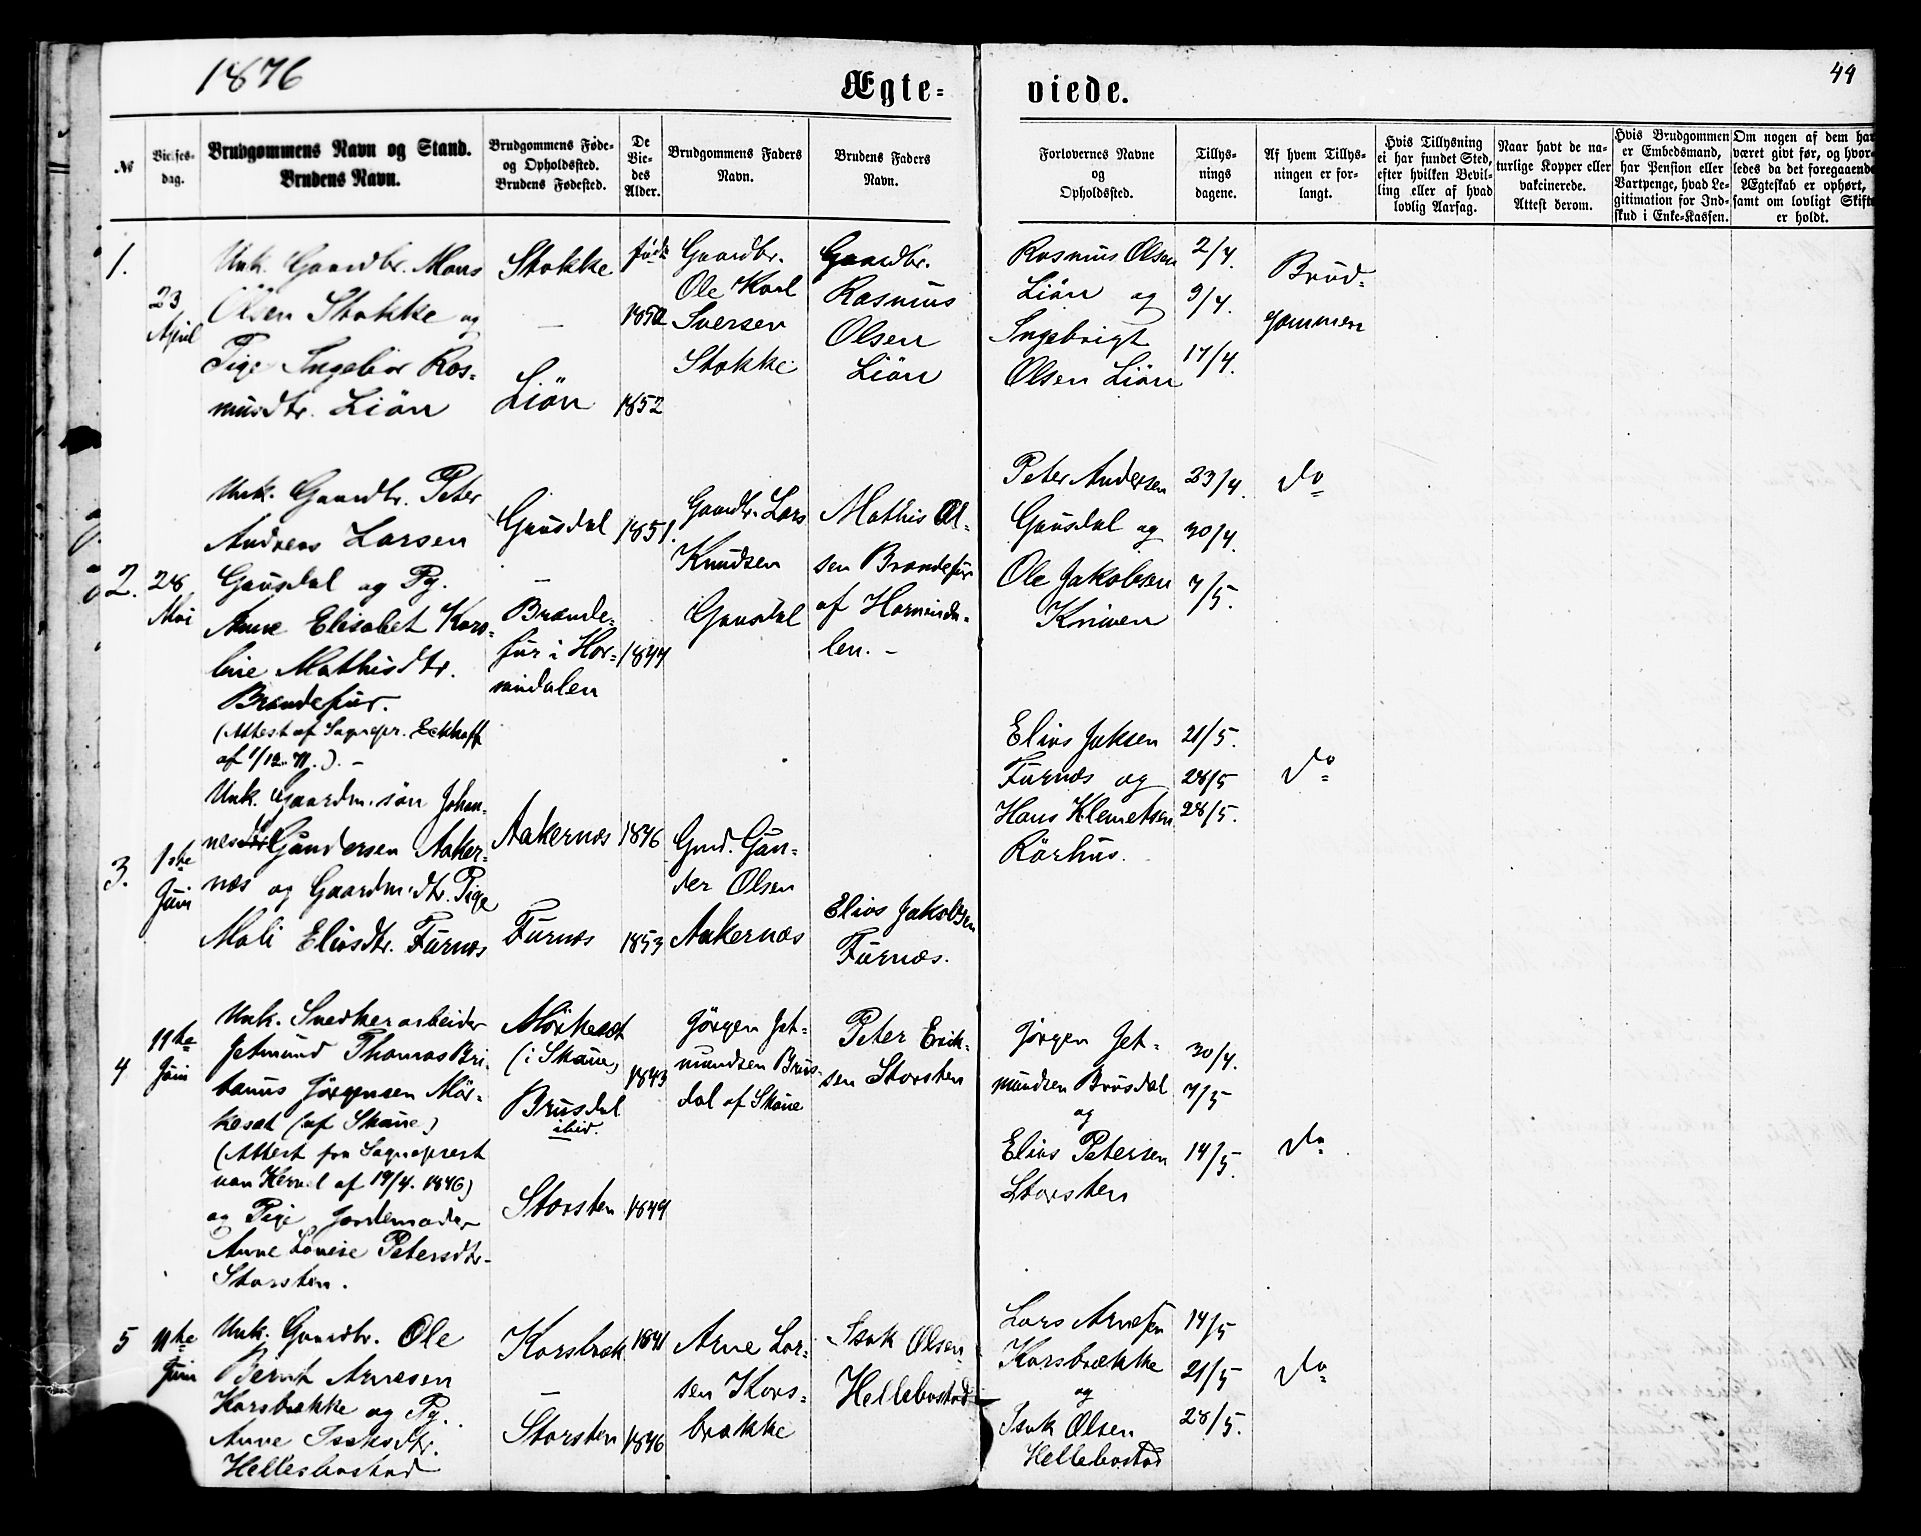 1876
Ægte-
viede.
44
№
Vielses-
dag.
Brudgommens Navn og Stand.
Brudens Navn.
Brudgommens Føde-
og Opholdssted.
Brudens Fødested.
De
Vie-
des
Alder.
Brudgommens Faders
Navn.
Brudens Faders
Navn.
Forlovernes Navne
og
Opholdssted.
Tillys-
nings
dagene.
Af hvem Tillys-
ningen er for-
langt.
Hvis Tillysning
ei har fundet Sted,
efter hvilken Bevil-
ling eller af hvad
lovlig Aarsag.
Naar havt de na-
turlige Kopper eller
vakcinerede.
Attest derom.
Hvis Brudgommen
er Embedsmand,
har Pension eller
Vartpenge, hvad Le-
gitimation for Ind-
skud i Enke-Kassen.
Om nogen af dem har
været givt før, og hvor-
ledes da det foregaaende
Ægteskab er ophørt,
samt om lovligt Skifte
er holdt.
1.
23
April
Unk. Gaardbr. Mons
Olsen Stokke og
Pige Ingebor Ras-
musdtr. Liön
Stokke
–
Liön
født
1850
1852
Gaardbr.
Ole Karl
Iversen
Stokke
Gaardbr.
Rasmus
Olsen
Liön
Rasmus Olsen
Liön og
Ingebrigt
Olsen Liön
2/4.
9/4.
17/4.
Brud-
gommen
2.
28
Mai
Unk. Gaardbr. Peter
Andreas Larsen
Gausdal og Pg.
Anne Elisabet Karo-
line Mathisdtr.
Brandefur.
(Attest af Sognepr. Eckhoff
af 1/12. 71.). –
Gausdal
–
Brande-
fur i Hor-
nindalen
1851.
1844
Gaardbr. Lars
Knudsen
Gausdal
Mathis Ol-
sen Brandefur
af Horninda-
len. –
Peter Andersen
Gausdal og
Ole Jakobsen
Kniven
23/4.
30/4.
7/5.
do
3.
1ste
Juni
Unk. Gaardm. søn Johan-
nes Gundersen Aaker-
næs og Gaardm. dtr. Pige
Mali Eliasdtr. Furnæs
Aakernæs
Furnæs
1846
1853
Gmd. Gun-
der Olsen
Aakernæs
Elias Jakobsen
Furnæs.
Elias Jaksen
Furnæs og
Hans Klemetsen
Rørhus.
21/5.
28/5
28/5.
do
4
11te
Juni
Unk. Snedkerarbeider
Jetmund Thomas Bri-
tanus Jørgensen Mör-
keset (af Skaue)
(Attest fra Sogneprest
van Kervel af 19/4. 1876)
og Pige Jordemoder
Anne Lovise Petersdtr.
Storsten.
Mörkeset
(i Skaue)
Brusdal
ibid.
Storsten
1843
1849
Jørgen Jet-
mundsen Brus-
dal af Skaue
Peter Erik-
sen Storsten
Jørgen Jet-
mundsen Brusdal
og
Elias Petersen
Storsten
30/4.
7/5
14/5.
do
5
11te
Juni
Unk. Gaardbr. Ole
Bernt Arnesen
Korsbrække og Pg.
Anne Isaksdtr.
Hellebostad
Korsbræk
–
Storsten
1841
1846
Arne Lar-
sen Kors-
brække
Isak Olsen
Hellebostad
Lars Arnesen
Korsbrække
og
Isak Olsen
Hellebostad
14/5
21/5
28/5.
do